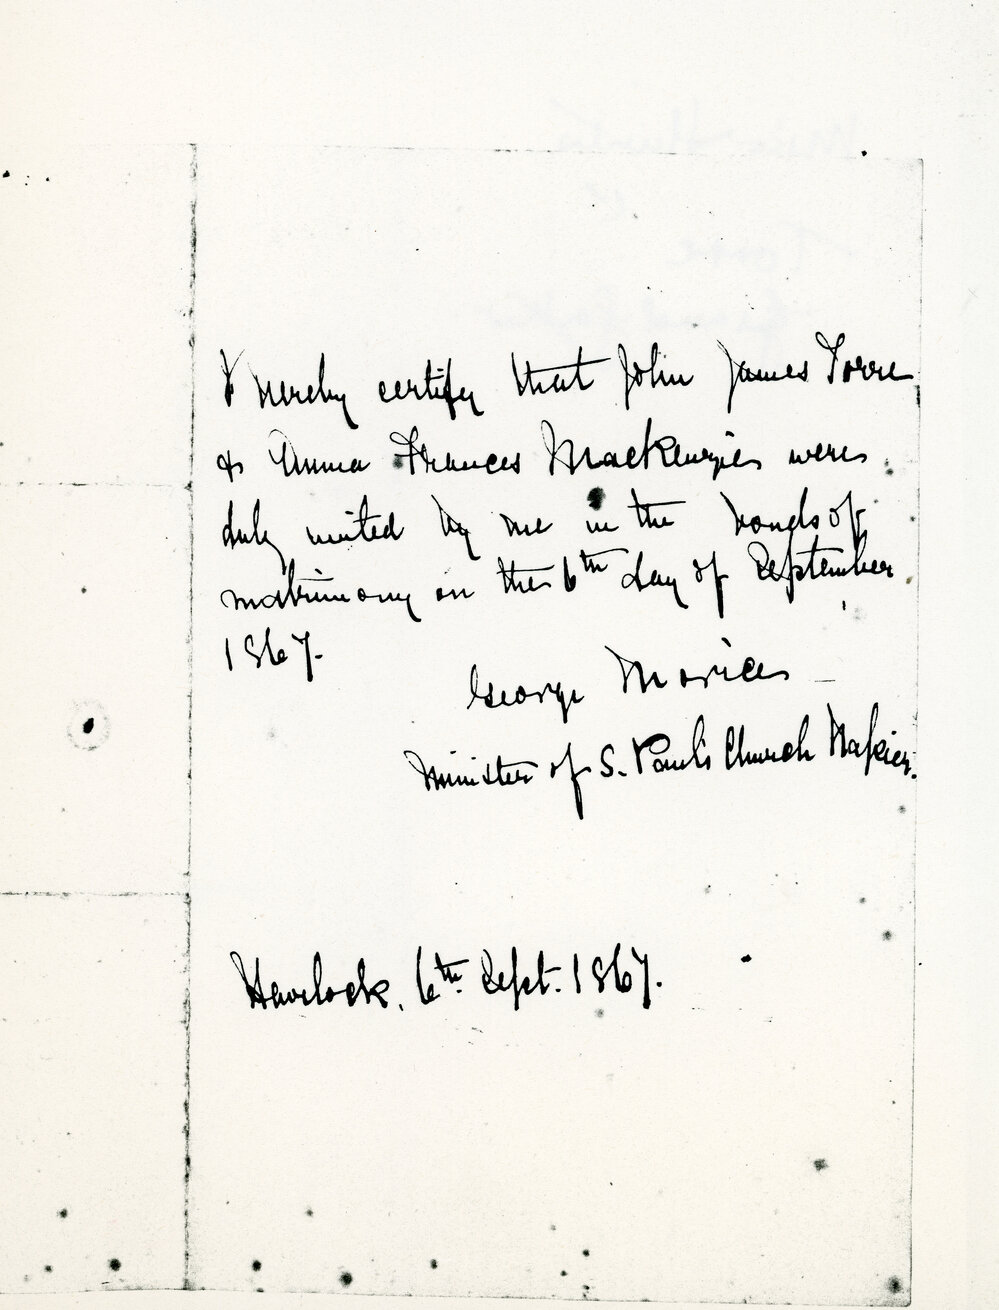 I hereby certify that John James Torre
& Anna Frances Mackenzie were
duly united by me in the bonds of
matrimony on the 6th day of September
1867.
George Morice
Minister of S. Paul's Church Napier.
Havelock, 6th. Sept. 1867.